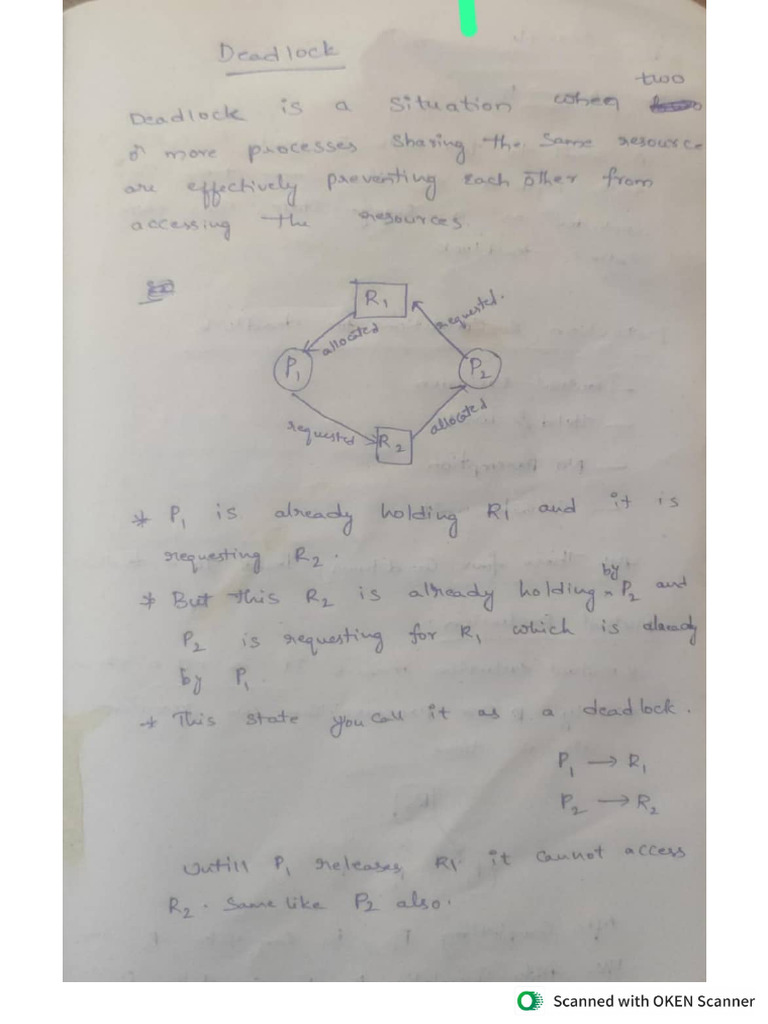 Deadlock
two
Deadlock is a situation when
or more processes sharing the same resource
are effectively preventing each other from
accessing the resources.
R1
requested.
allocated
P1
P2
requested
R2
allocated
* P1 is already holding R1 and it is
requesting R2.
by
* But this R2 is already holding ^ P2 and
P2 is requesting for R1 which is already
by P1.
* This state you call it as a deadlock.
P1 → R1
P2 → R2
Untill P1 releases R1 it cannot access
R2. Same like P2 also.
Scanned with OKEN Scanner